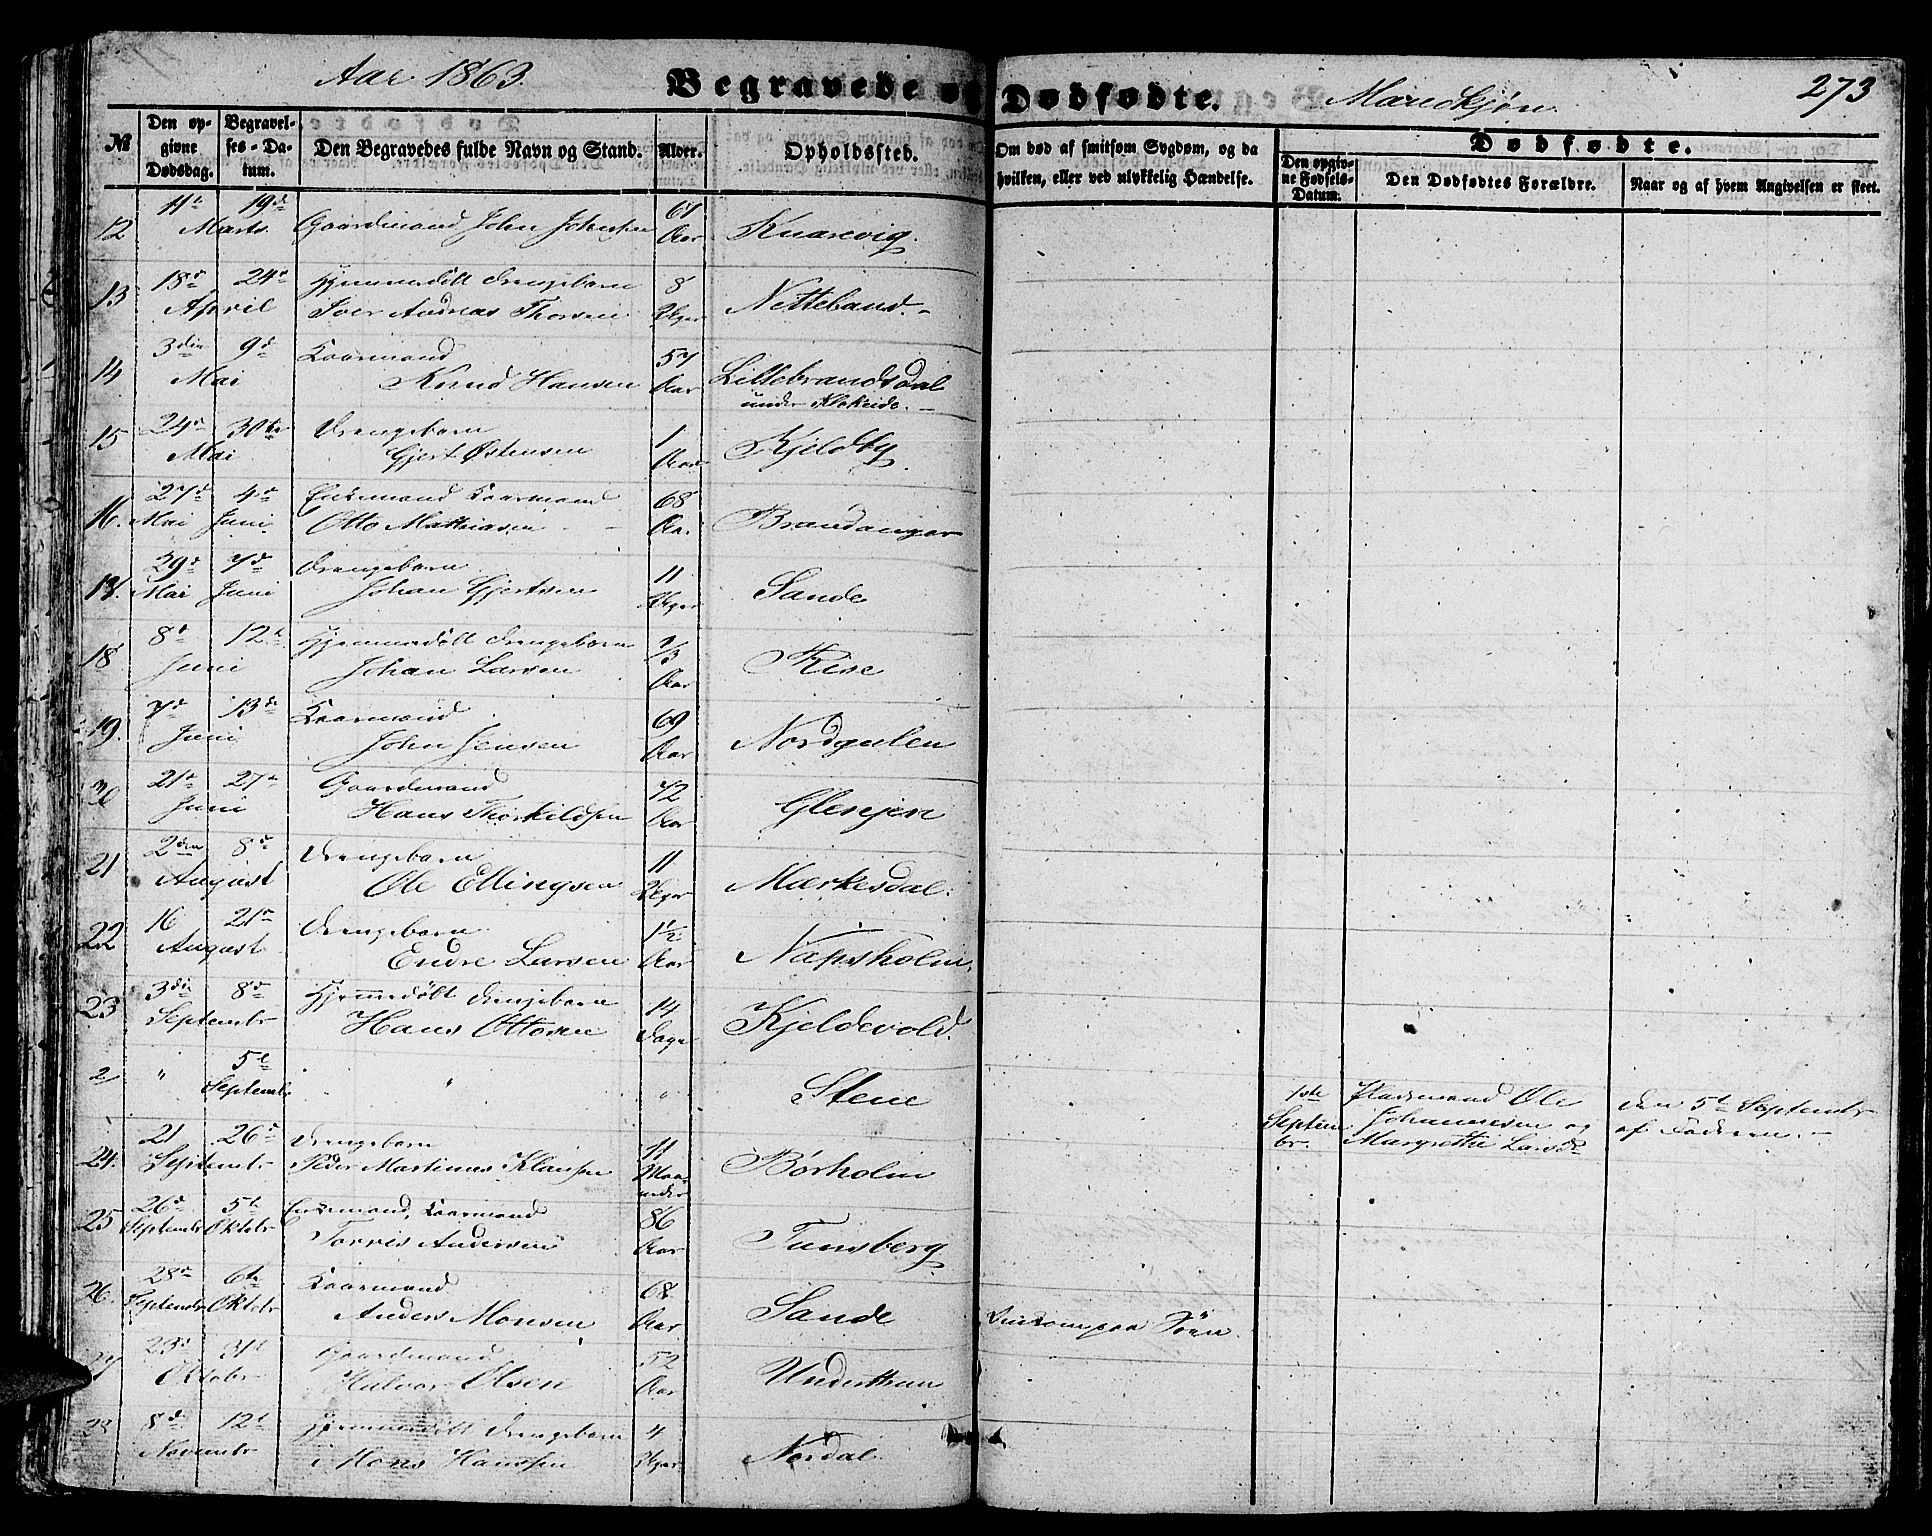 Aar 1863.
Begravede og Dødfødte.
Mandkjøn
273
№
Den opgivne Dødsdag.
Begravelses-Datum.
Den Begravedes fulde Navn og Stand.
Alder.
Opholdssted.
Om død af smitsom Sygdom, og da hvilken, eller ved ulykkelig Hændelse.
Dødfødte.
Den opgivne Fødsels-Datum.
Den Dødfødtes Forældre.
Naar og af hvem Angivelsen er skeet.
12 11t 19de Marts Gaardmand John Johnsen Aar Knarvig.
13 18de 24de April Hjemmedøbt Drengebarn
Iver Andreas Thorsen 8 Uger Netteband.
14 3die 9de Mai Kaarmand
Knud Hansen 57 Aar Lillebrandsdal
under Flekeide.
15 24de 30te Mai Drengebarn
Gjert Østensen 1 Aar Kjeldby
16. 27de Mai 4de Juni Enkemand Kaarmand
Otto Mathiasen 68 Aar Brandanger
17. 29de Mai 7de Juni Drengebarn
Johan Gjertsen 11 Uger Sande
18 8de 12te Juni Hjemmedøbt Drengebarn
Johan Larsen Aar Rise
19. 7de 13de Juni Kaarmand
John Jensen 69 Aar Nordgulen
20 21de 27de Juni Gaardmand
Hans Thorkildsen 42 Aar Glenjen
21 2den 8de August Drengebarn
Ole Ellingsen 11 Uger Mærkesdal.
22 16 21de August Drengebarn
Endre Larsen 1½ Aar Næpsholm.
23 3die 8de Septembr Hjemmedøbt Drengebarn
Hans Ottosen 14 Dage Kjeldevold.
2 " 5te Septembr " " Stene 1ste Septembr. Pladsmand Ole
Johannesen og
Margrethe Larsd. den 5te Septembr
af Faderen.
24. 21 26de Septembr Drengebarn
Peder Martinus Klausen 11 Maaneder Børholm
25 26de Septembr 5te Oktobr Enkemand, Kaarmand
Torris Andersen 86 Aar Tunsberg
26. 28de Septembr 6te Oktobr Kaarmand
Anders Monsen 68 Aar Sande Omkom paa Søen.
27 23de 31te Oktobr Gaardmand
Halvor Olsen 52 Aar Underthun
28 8de 12te Novembr Hjemmedøbt Drengebarn
Mons Hanssen 4 Uger Nordal